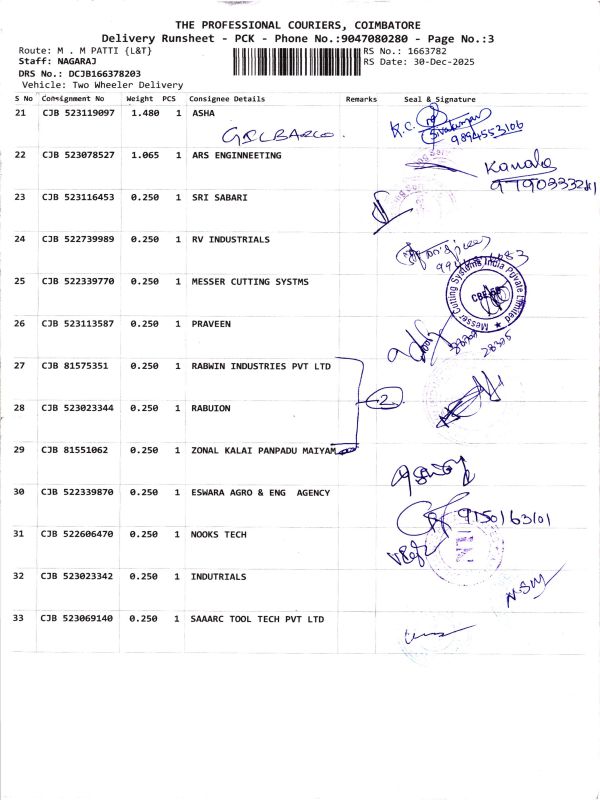 THE PROFESSIONAL COURIERS, COIMBATORE
Delivery Runsheet - PCK - Phone No.:9047080280 - Page No.:3
Route: M . M PATTI {L&T} RS No.: 1663782
Staff: NAGARAJ RS Date: 30-Dec-2025
DRS No.: DCJB166378203
Vehicle: Two Wheeler Delivery
S No Consignment No Weight PCS Consignee Details Remarks Seal & Signature
21 CJB 523119097 1.480 1 ASHA K.C. Sivakumar
GILBARCO. 9894553106
22 CJB 523078527 1.065 1 ARS ENGINNEETING Kanaka
23 CJB 523116453 0.250 1 SRI SABARI
24 CJB 522739989 1 RV INDUSTRIALS 0.250
25 CJB 522339770 0.250 1 MESSER CUTTING SYSTMS Messer Cutting Systems India Private Limited
26 CJB 523113587 0.250 1 PRAVEEN
27 CJB 81575351 0.250 1 RABWIN INDUSTRIES PVT LTD
2
28 CJB 523023344 0.250 1 RABUION
29 CJB 81551062 0.250 1 ZONAL KALAI PANPADU MAIYAM
30 CJB 522339870 0.250 1 ESWARA AGRO & ENG AGENCY 9150163101
31 CJB 522606470 0.250 1 NOOKS TECH
32 CJB 523023342 0.250 1 INDUTRIALS
33 CJB 523069140 0.250 1 SAAARC TOOL TECH PVT LTD